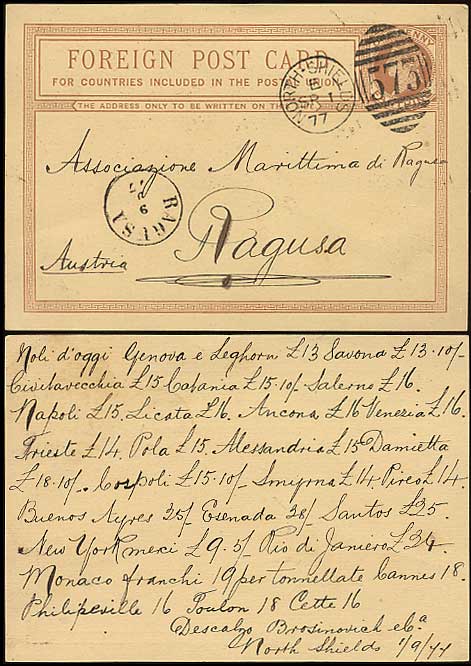 FOREIGN POST CARD
FOR COUNTRIES INCLUDED IN THE POST
THE ADDRESS ONLY TO BE WRITTEN ON THE
PENNY
NORTH-SHIELDS
SP 1
77
575
Associazione Marittima di Ragusa
RAGUSA
9
Ragusa
Austria
Noli d'oggi Genova e Leghorn £13 Savona £13.10/-
Civitavecchia £15 Catania £15.10/- Salerno £16.
Napoli £15. Licata £16. Ancona £16 Venezia £16.
Trieste £14. Pola £15. Alessandria £15 Damietta
£18.10/-. Cospoli £15.10/- Smyrna £14. Pireo £14.
Buenos Ayres 35/- Esenada 38/- Santos £35.
New York merci £9.5/- Rio di Janiero £34.
Monaco franchi 19 per tonnellate Cannes 18.
Philipeville 16 Toulon 18 Cette 16
Descalzo Brosinovich e Cᵃ
North Shields 1/9/77